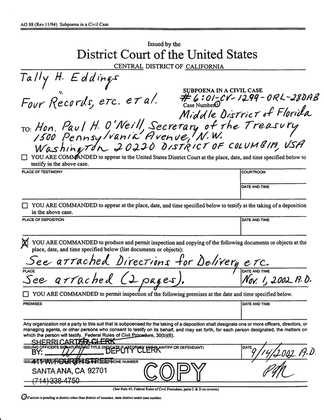 AO 88 (Rev 11/94) Subpoena in a Civil Case
Issued by the
District Court of the United States
CENTRAL DISTRICT OF CALIFORNIA
Tally H. Eddings
V.
Four Records, etc. et al.
SUBPOENA IN A CIVIL CASE
Case Number:
#6:01-CV-1299-ORL-28DAB
Middle District of Florida
TO: Hon. Paul H. O'Neill, Secretary of the Treasury
1500 Pennsylvania Avenue, N.W.
Washington 20220 DISTRICT OF COLUMBIA, USA
YOU ARE COMMANDED to appear in the United States District Court at the place, date, and time specified below to testify in the above case.
PLACE OF TESTIMONY
COURTROOM
DATE AND TIME
YOU ARE COMMANDED to appear at the place, date, and time specified below to testify at the taking of a deposition in the above case.
PLACE OF DEPOSITION
DATE AND TIME
X YOU ARE COMMANDED to produce and permit inspection and copying of the following documents or objects at the place, date, and time specified below (list documents or objects):
See attached Directions for Delivery etc.
PLACE
See attached (2 pages).
DATE AND TIME
Nov. 1, 2002 A.D.
YOU ARE COMMANDED to permit inspection of the following premises at the date and time specified below.
PREMISES
DATE AND TIME
Any organization not a party to this suit that is subpoenaed for the taking of a deposition shall designate one or more officers, directors, or managing agents, or other persons who consent to testify on its behalf, and may set forth, for each person designated, the matters on which the person will testify. Federal Rules of Civil Procedure, 30(b)(6).
SHERRI CARTER CLERK
BY: DEPUTY CLERK
DATE
9/14/2002 A.D.
411 W. FOURTH STREET
SANTA ANA, CA 92701
(714) 338-4750
COPY
(See Rule 45, Federal Rules of Civil Procedure, parts C & D on reverse)
If action is pending in district other than district of issuance, state district under case number.